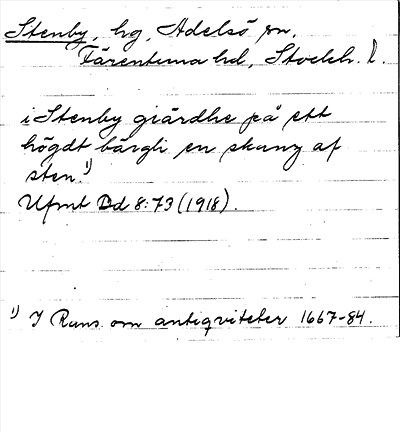 Stenby, hg, Adelsö sn,
Färentuna hd, Stockh. l.
i Stenby giärdhe på ett
högdt bärgh en skanz af
sten.¹)
Ufmt Dd 8:73 (1918).
¹) I Rans. om antiqviteter 1667-84.